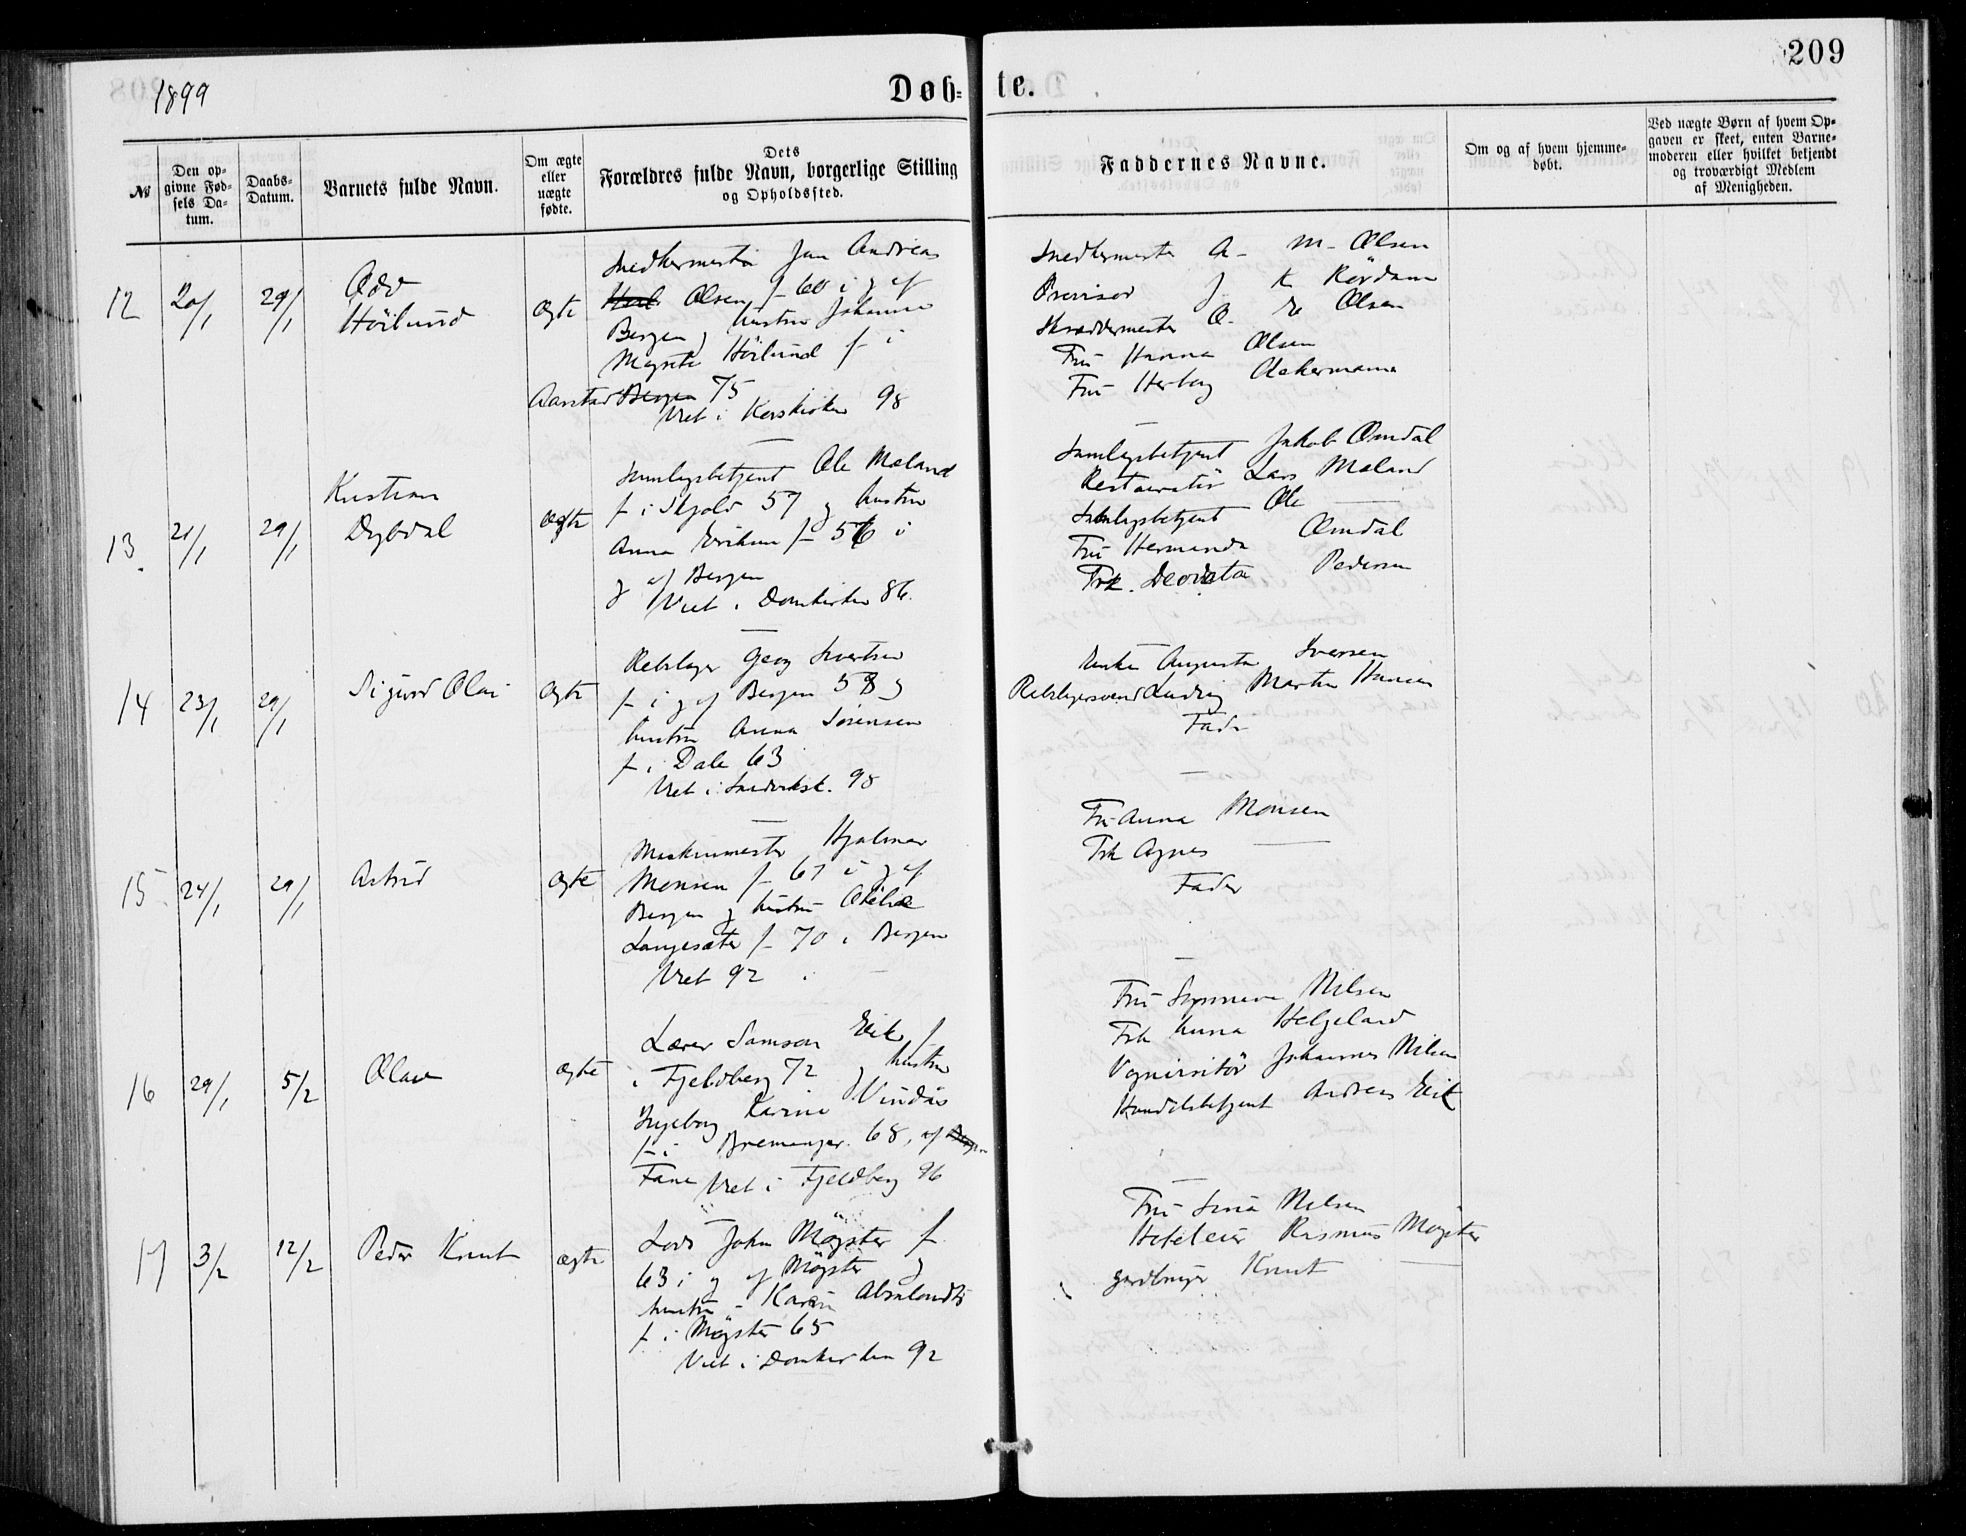 1899
Døb=
te.
209
№
Den op=
givne Fød=
sels Da=
tum.
Daabs=
Datum.
Barnets fulde Navn.
Om ægte
eller
uægte
fødte.
Dets
Forældres fulde Navn, borgerlige Stilling
og Opholdssted.
Faddernes Navne.
Om og af hvem hjemme=
døbt.
Ved uægte Børn af hvem Op=
gaven er skeet, enten Barne=
moderen eller hvilket betjendt
og troværdigt Medlem
af Menigheden.
12
20/1
29/1
Odv
Höilund
ægte
Snedkermester Jan Andreas
Olsen f 60 i g af
Bergen g hustru Johanne
Margrete Höilund f i
Aarstad Bergen 75
Viet i Korskirken 98
Snedkermester A. M. Olsen
Provisor J K Rördam
Skræddermester O. E Olsen
Fru Hanna Olsen
Fru Herborg Ackermann
13
21/1
29/1
Kristian
Dybdal
ægte
Samlagsbetjent Ole Mæland
f i Skjold 57 g hustru
Anna Eriksen f 56 i
g af Bergen
Viet i Domkirken 86.
Samlagsbetjent Jakob Omdal
Restauratör Lars Mæland
Samlagsbetjent Ole —
Fru Hermanda Omdal
Frk. Deodata Pedersen
14
23/1
29/1
Sigurd Olai
ægte
Rebslager Georg Sivertsen
f i g af Bergen 58 g
hustru Anna Sörensen
f i Dale 63
Viet i Sandviksk. 98
Enke Augusta Iversen
Rebslagersvend Ludvig Martin Hansen
Fader
15
24/1
29/1
Astrid
ægte
Maskinmester Hjalmar
Monsen f 67 i g af
Bergen g hustru Otilie
Langesæter f 70 i Bergen
Viet 92
Fru Anna Monsen
Frk Agnes —
Fader
16
29/1
5/2
Olav
ægte
Lærer Samson Eik f
i Fjeldberg 72 g hustru
Ingeborg Karine Vindäs
f i Bremanger 68, af Bergen
Fane Viet i Fjeldberg 96
Fru Synneva Nilsen
Frk Anna Helgeland
Vognvisitör Johannes Nilsen
Handelsbetjent Andreas Eik
17
3/2
12/2
Peder Knut
ægte
Lods John Mögster f
63 i g af Mögster g
hustru Karen
f i Mögster 65
Viet i Domkirken 92
Fru Sina Nilsen
Hoteleier Rasmus Mögster
Gardbruger Knut —